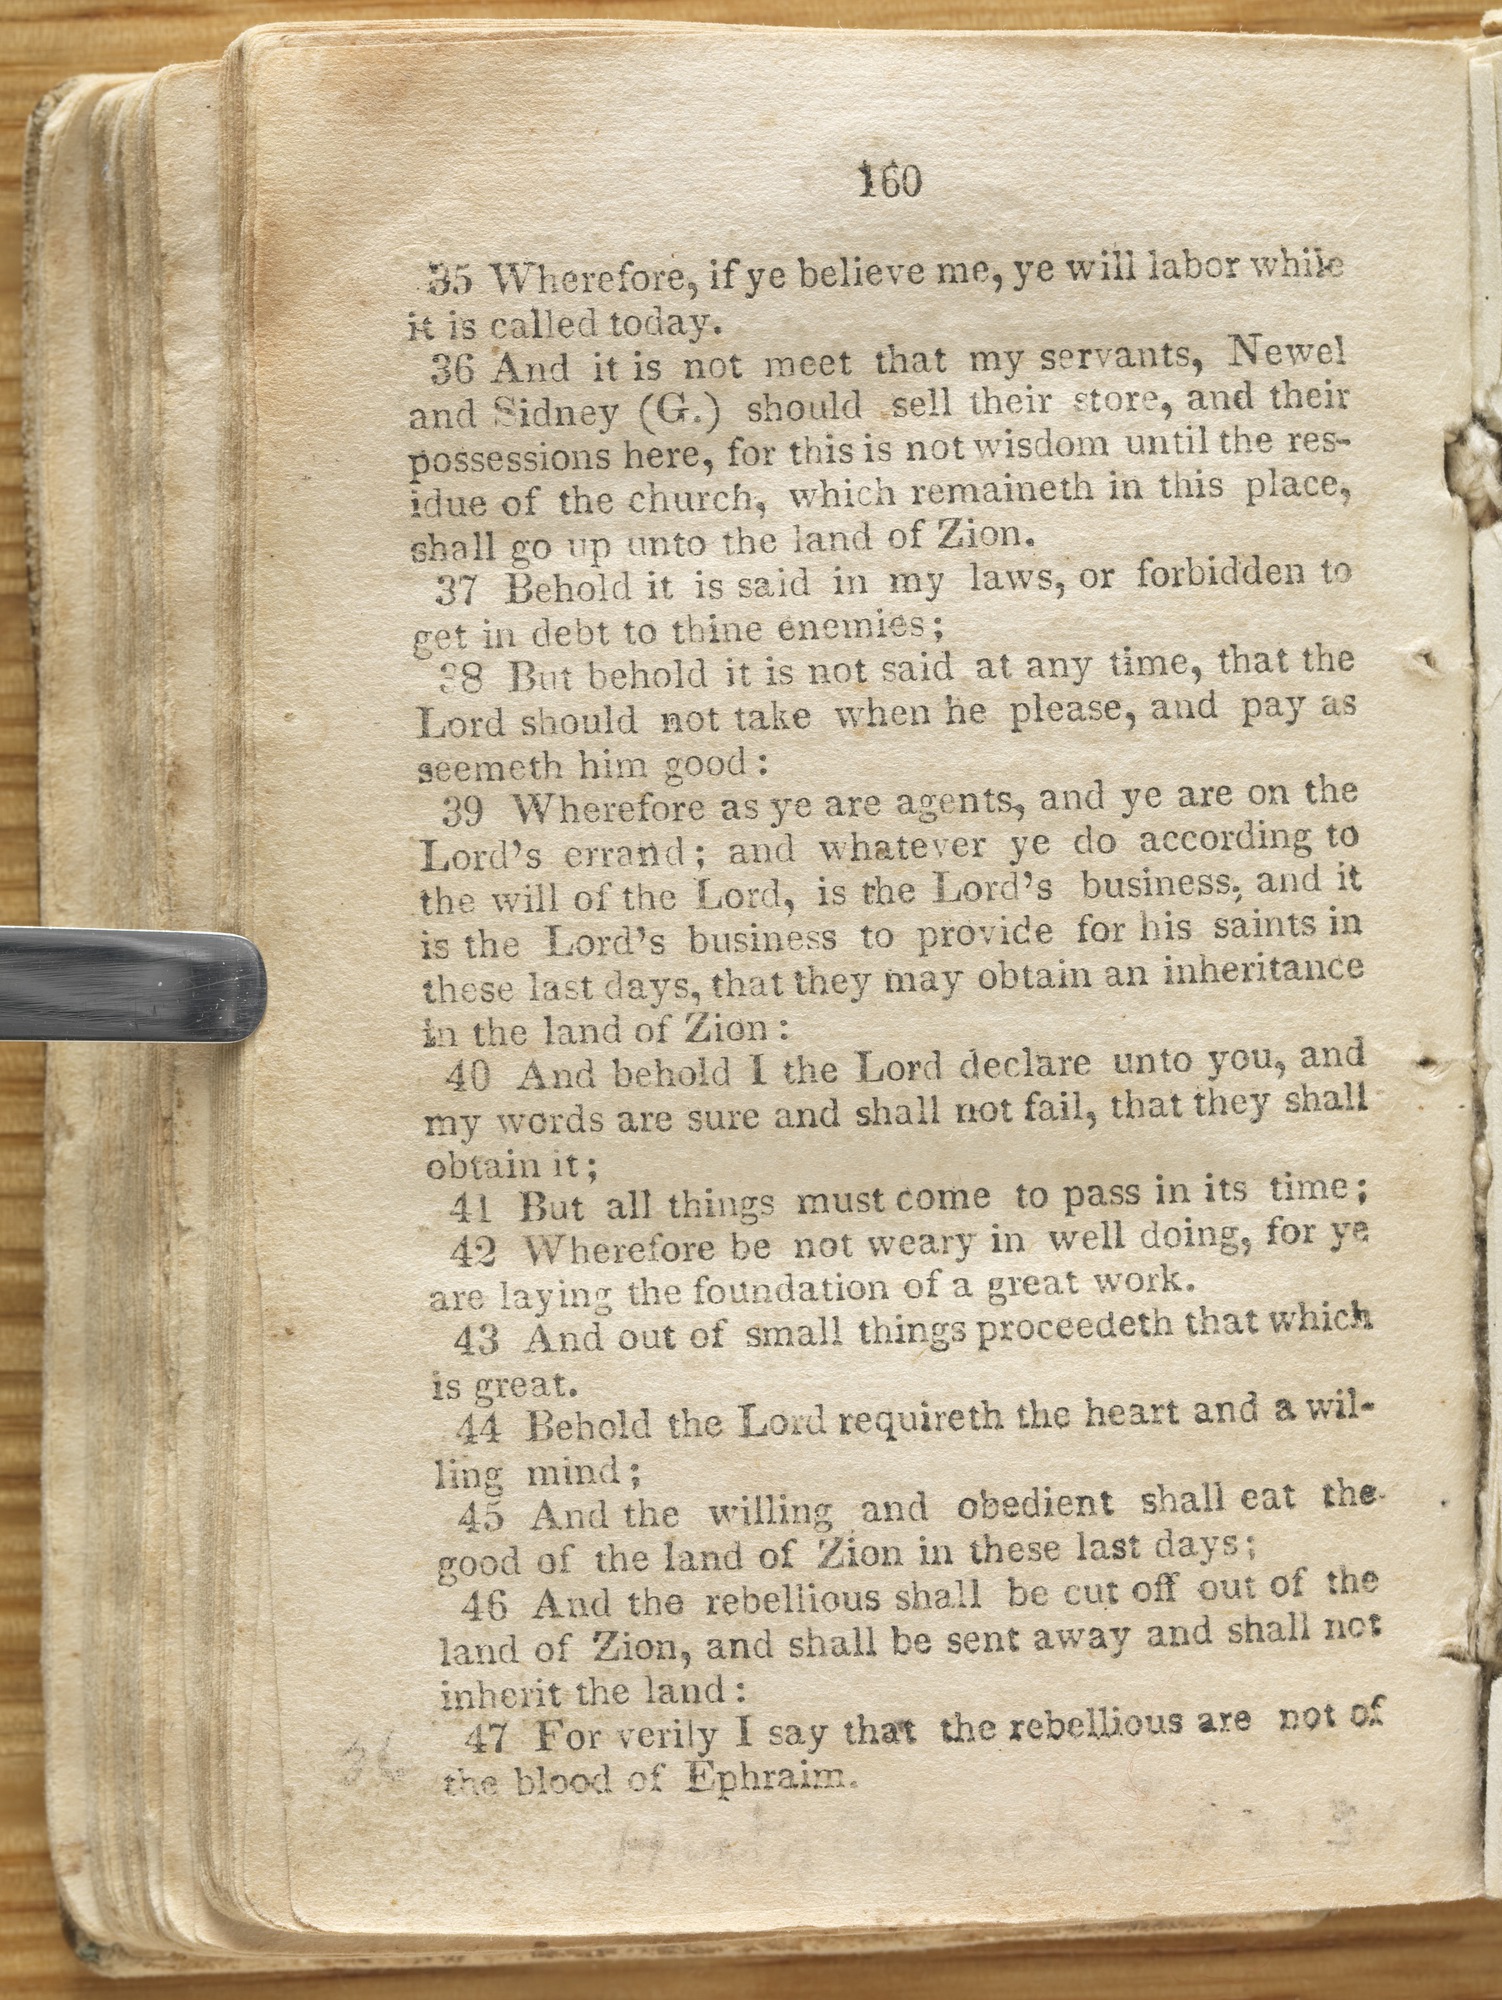 160
35 Wherefore, if ye believe me, ye will labor while
it is called today.
36 And it is not meet that my servants, Newel
and Sidney (G.) should sell their store, and their
possessions here, for this is not wisdom until the res-
idue of the church, which remaineth in this place,
shall go up unto the land of Zion.
37 Behold it is said in my laws, or forbidden to
get in debt to thine enemies;
38 But behold it is not said at any time, that the
Lord should not take when he please, and pay as
seemeth him good:
39 Wherefore as ye are agents, and ye are on the
Lord's errand; and whatever ye do according to
the will of the Lord, is the Lord's business, and it
is the Lord's business to provide for his saints in
these last days, that they may obtain an inheritance
in the land of Zion:
40 And behold I the Lord declare unto you, and
my words are sure and shall not fail, that they shall
obtain it;
41 But all things must come to pass in its time;
42 Wherefore be not weary in well doing, for ye
are laying the foundation of a great work.
43 And out of small things proceedeth that which
is great.
44 Behold the Lord requireth the heart and a wil-
ling mind;
45 And the willing and obedient shall eat the
good of the land of Zion in these last days;
46 And the rebellious shall be cut off out of the
land of Zion, and shall be sent away and shall not
inherit the land:
47 For verily I say that the rebellious are not of
the blood of Ephraim.